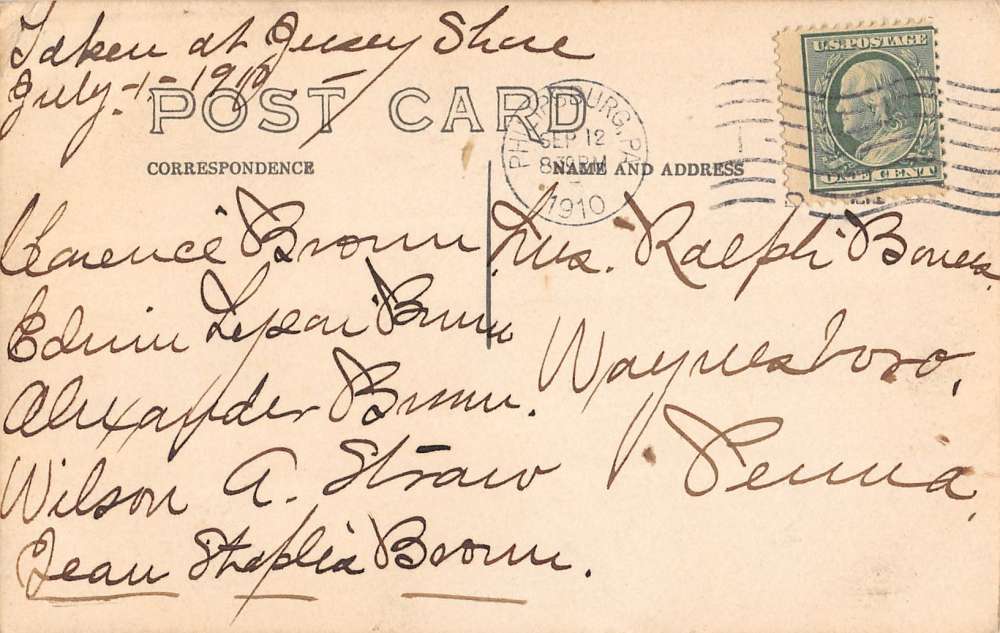 Taken at Jersey Shore
July 1 - 1910
POST CARD
CORRESPONDENCE
NAME AND ADDRESS
U.S. POSTAGE
ONE CENT
PHILIPSBURG, PA.
SEP 12
8:30 PM
1910
Clarence Brown
Edwin Tyson Brown
Alexander Brown.
Wilson A. Straw
Jean Brown.
Mrs. Ralph Bowers
Waynesboro,
Penna.